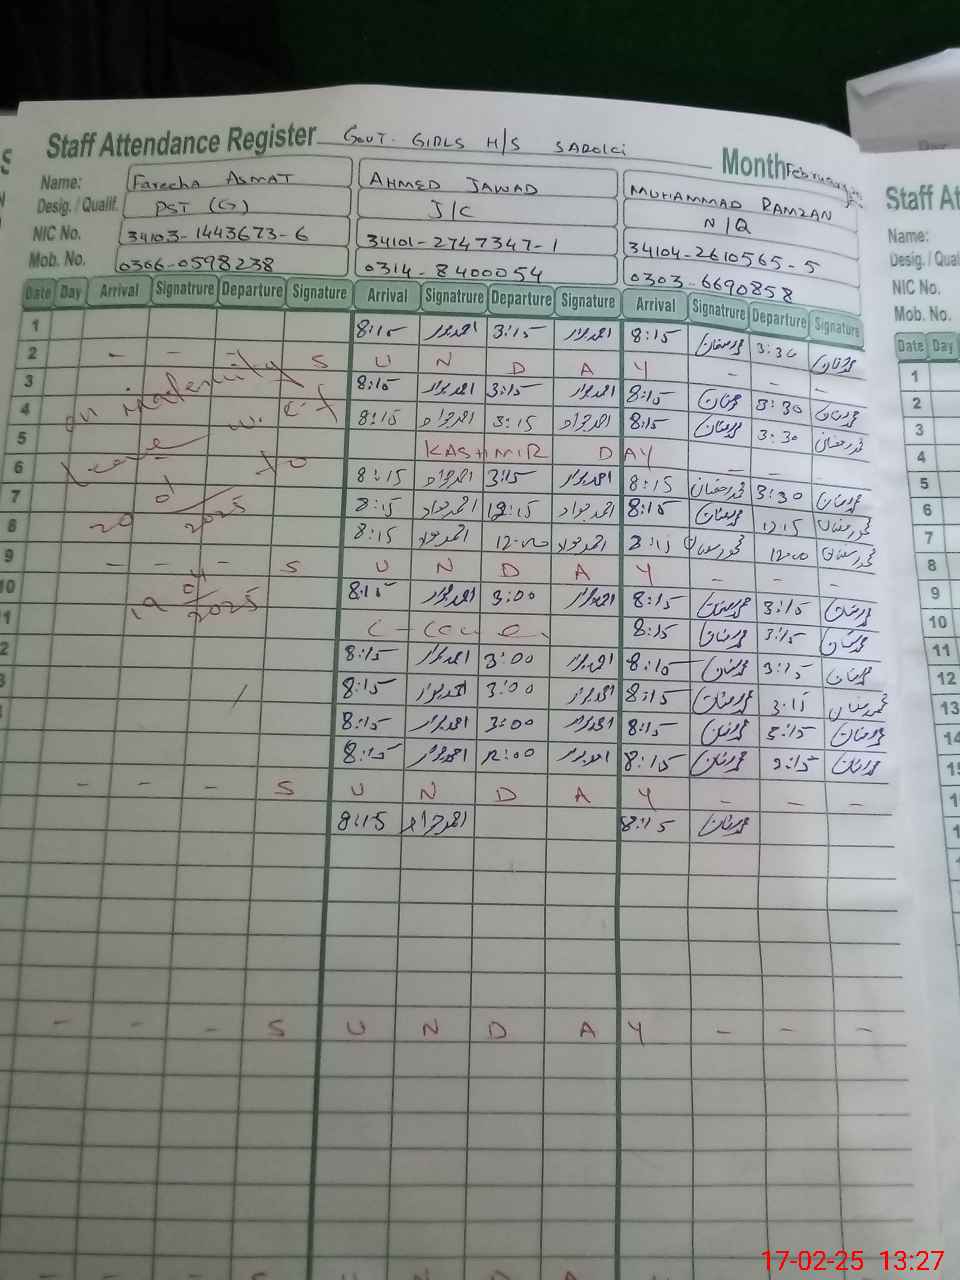 Staff Attendance Register GOVT. GIRLS H/S SADOKI Month February
Name: Fareeha ASMAT AHMED JAWAD MUHAMMAD RAMZAN
Desig. / Qualif. PST (G) J/C N/Q
NIC No. 34103-1443673-6 34101-2747347-1 34104-2610565-5
Mob. No. 0306-0598238 0314-8400054 0303-6690858
Date Day Arrival Signatrure Departure Signature Arrival Signatrure Departure Signature Arrival Signatrure Departure Signature
1 8:15 احمد جواد 3:15 احمد جواد 8:15 محمد رمضان 3:30 محمد رمضان
2 - - S U N D A Y - - -
3 on Maternity 8:15 احمد جواد 3:15 احمد جواد 8:15 محمد رمضان 3:30 محمد رمضان
4 w.e.f 8:15 احمد جواد 3:15 احمد جواد 8:15 محمد رمضان 3:30 محمد رمضان
5 Leave KASHMIR DAY - -
6 to 8:15 احمد جواد 3:15 احمد جواد 8:15 محمد رمضان 3:30 محمد رمضان
7 20 01/2025 8:15 احمد جواد 12:15 احمد جواد 8:15 محمد رمضان 12:15 محمد رمضان
8 8:15 احمد جواد 12:00 احمد جواد 8:15 محمد رمضان 12:00 محمد رمضان
9 - - - S U N D A Y - - -
10 19 04/2025 8:15 احمد جواد 3:00 احمد جواد 8:15 محمد رمضان 3:15 محمد رمضان
1 8:15 محمد رمضان 3:15 محمد رمضان
2 8:15 احمد جواد 3:00 احمد جواد 8:15 محمد رمضان 3:15 محمد رمضان
3 8:15 احمد جواد 3:00 احمد جواد 8:15 محمد رمضان 3:15 محمد رمضان
8:15 احمد جواد 3:00 احمد جواد 8:15 محمد رمضان 3:15 محمد رمضان
8:15 احمد جواد 12:00 احمد جواد 8:15 محمد رمضان 3:15 محمد رمضان
- - - S U N D A Y - - -
8:15 احمد جواد 8:15 محمد رمضان
- - - S U N D A Y - - -
S U N D A Y
Staff At
Name:
Desig. / Qual
NIC No.
Mob. No.
Date Day
1
2
3
4
5
6
7
8
9
10
11
12
13
14
15
17-02-25 13:27